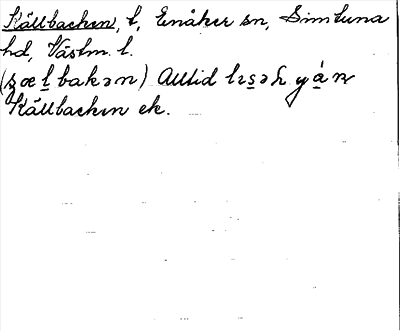 Källbacken, t, Enåker sn, Simtuna
hd, Västm. l.
(ʂæḻbakən) Alltid
Källbacken ek.